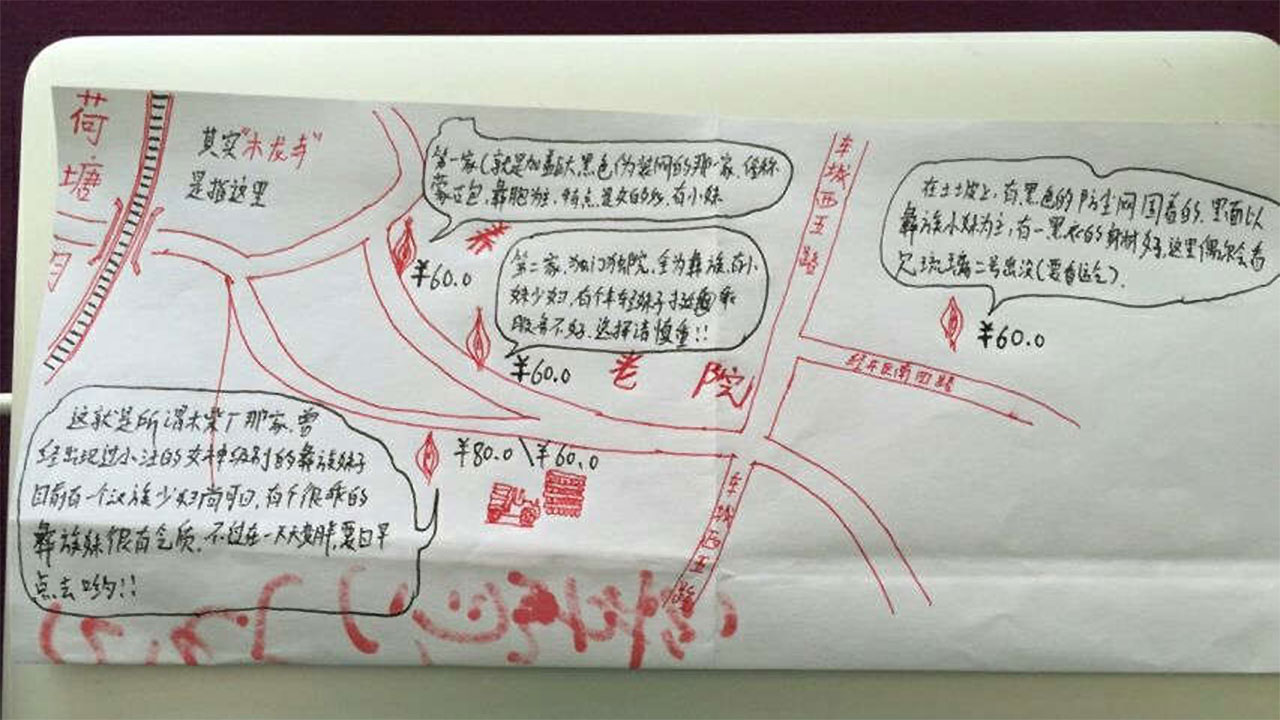 荷
塘
其实"木龙寺"
是指这里
月
第一家(就是加盖大黑色伪装网的那一家,俗称
蒙古包,彝胞为主,特点是女的多,有小妹
¥60.0
第二家,独门独院,全为彝族,有小
妹少妇,有个年轻妹子
服务不好,选择请慎重!!
¥60.0
老 院
车城西五路
在土坡上,有黑色的防尘网围着的,里面以
彝族小妹为主,有一黑衣的身材好,这里偶尔会看
见琉璃二号出没(要看运气).
¥60.0
经开区南四路
这就是所谓木柴厂那家,曾
经出现过小汪的女神级别的彝族妹子
目前有一个汉族少妇尚可口,有个很乖的
彝族妹很有气质,不过在一天天变胖,要日早
点去哟!!
¥80.0\¥60.0
车城西五路